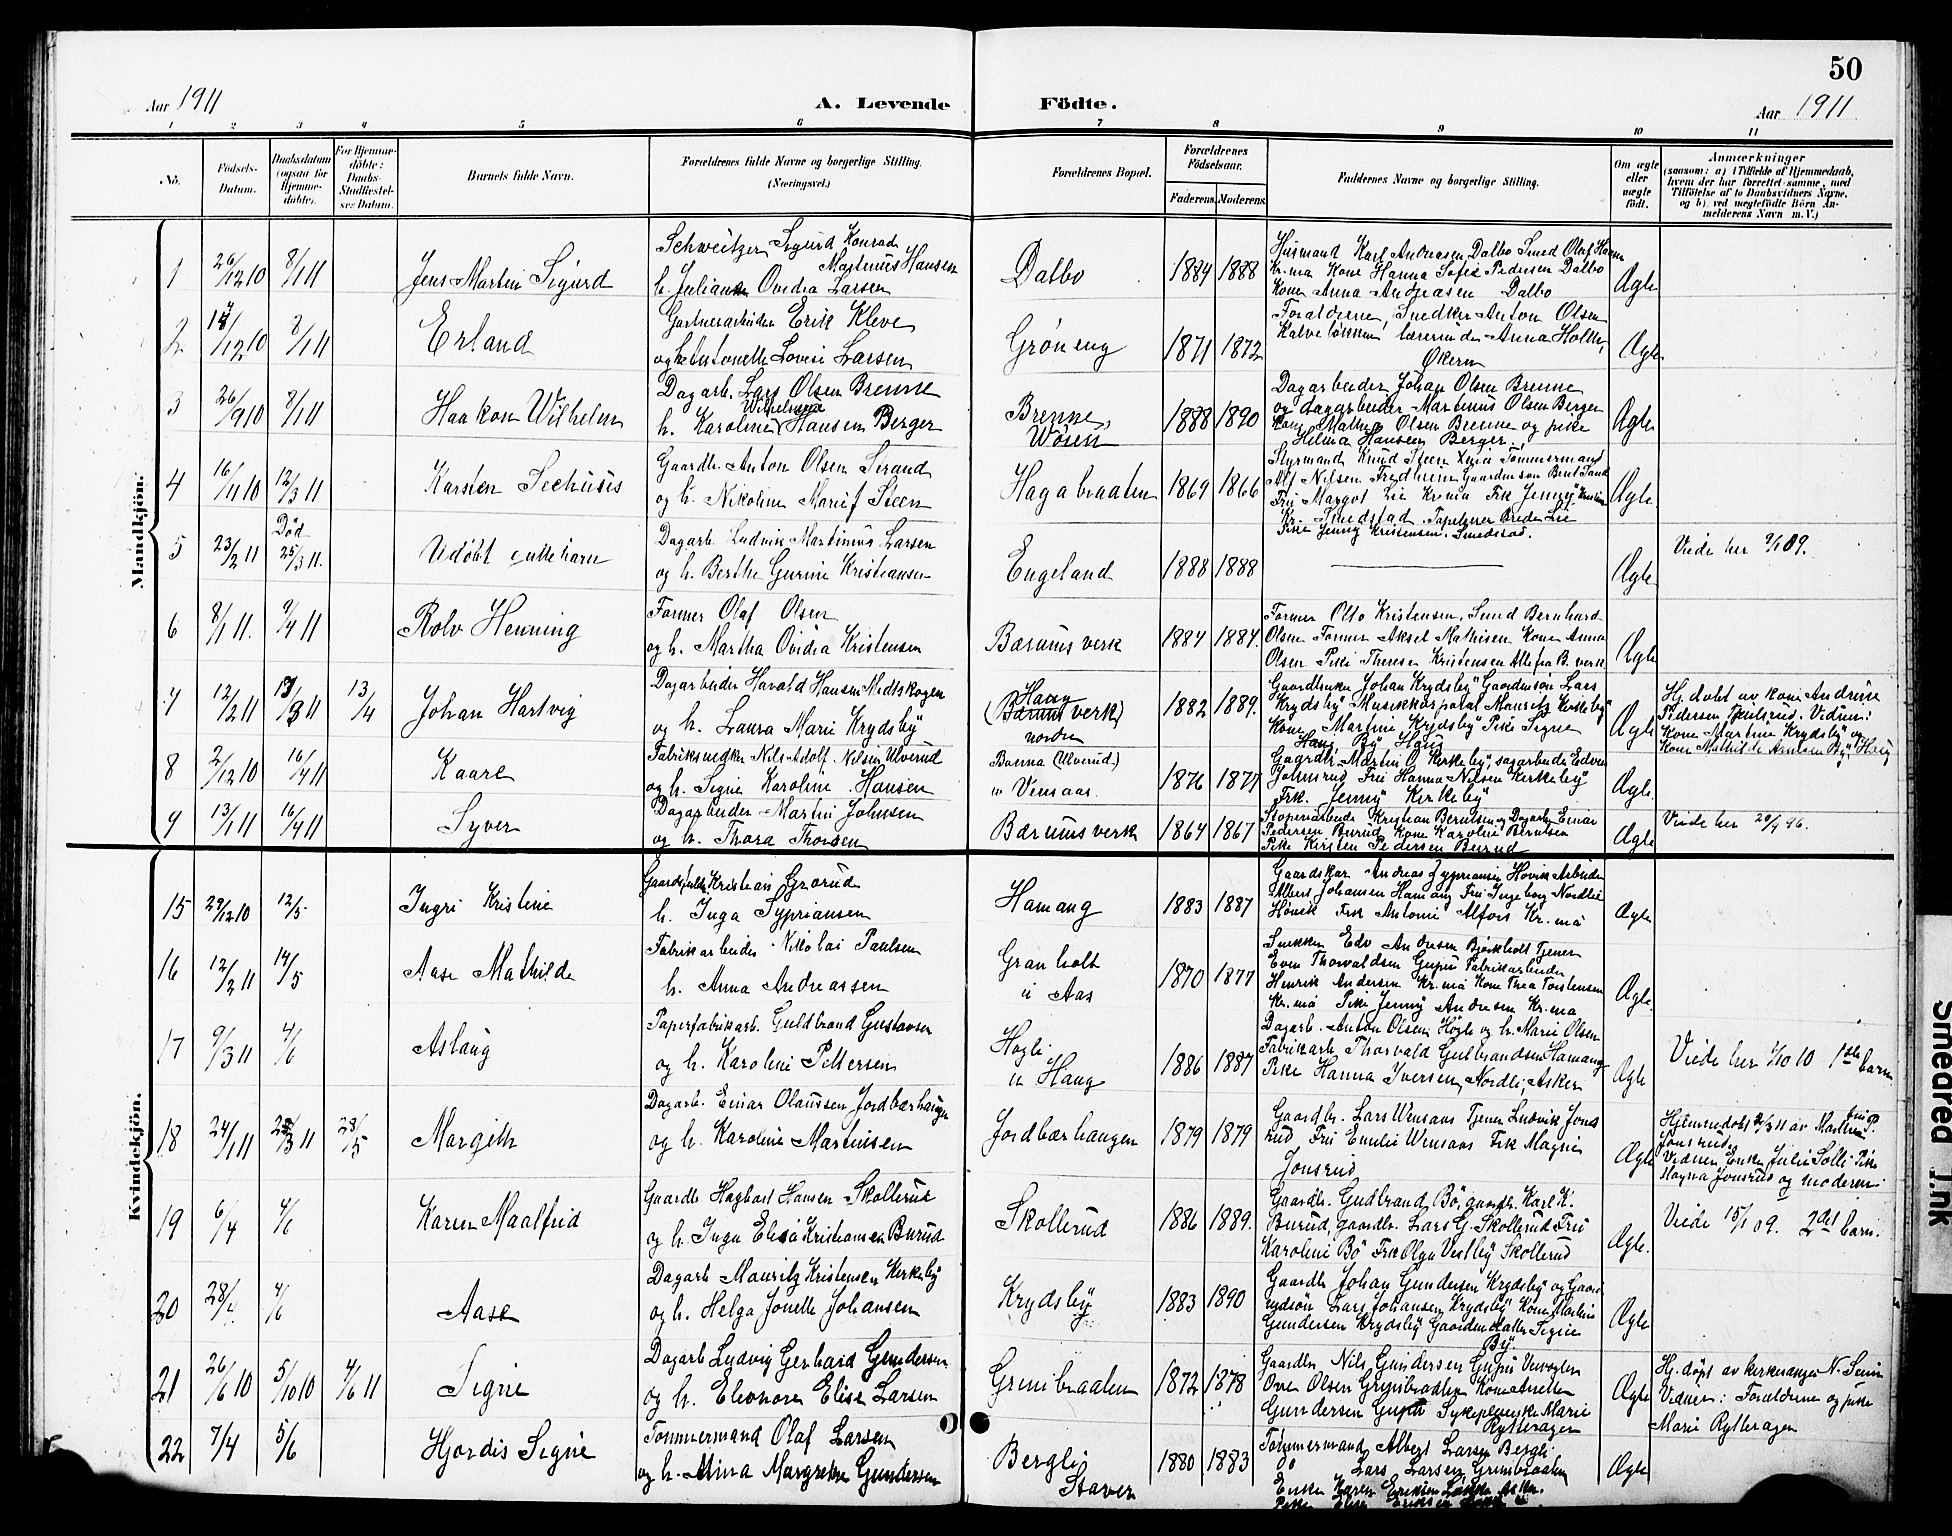 50
Aar 1911
A. Levende Födte.
Aar 1911
1 2 3 4 5 6 7 8 9 10 11
No.
Fødsels-Datum.
Daabsdatum (ogsaa for Hjemmedøbte).
For Hjemmedöbte: Daabs-Stadfæstelses Datum.
Barnets fulde Navn.
Forældrenes fulde Navne og borgerlige Stilling. (Næringsvei.)
Forældrenes Bopæl.
Forældrenes Födselsaar.
Faderens. Moderens.
Faddernes Navne og borgerlige Stilling.
Om ægte eller uægte født.
Anmærkninger
(saasom: a) i Tilfælde af Hjemmedaab, hvem der har forrettet samme, med Tilföielse af to Daabsvidners Navne, og b) ved uægtefödte Börn Anmelderens Navn m. V.)
Mandkjön.
1 26/12 10 8/1 11 Jens Martin Sigurd
Schweitzer Sigurd Konrad
Martinus Hansen
h. Juliane Ovidia Larsen
Dalbo 1884 1888
Husmand Karl Andreasen Dalbo Smed Olaf
Kr.ma Kone Hanna Sofie Pedersen Dalbo
Kone Anna Andreasen Dalbo
Ægte
2 /12 10 8/1 11 Erland
Gartnerarbeider Erik Kleve
og h. Antonette Lovise Larsen
Grøneng 1871 1872
Forældrene, Snedker Anton Olsen
Kalveløkken, lærerinde Anna Holter,
Økern
Ægte
3 26/9 10 8/1 11 Haakon Wilhelm
Dagarb. Lars Olsen Brenne
Wilhelmine
h. Karoline Hansen Berger
Brenne,
Wøien 1888 1890
Dagarbeider Johan Olsen Brenne
og dagarbeider Martinus Olsen Berger
Kone Mathea Olsen Brenne og pike
Helma Hansen Berger.
Ægte
4 16/11 10 12/3 11 Karsten Seehuus
Gaardbr. Anton Olsen Strand
og h. Nikoline Marie Steen
Hagabraaten 1869 1866
Styrmand Knud Steen Tømmermand
Alf Nilsen Fredheim Gaardmeson Bent Sand
Fru Margot Lie Kr.nia Frk Jenny
Kr. Smedstad. Tapetserer Lie
Pike Jenny Kristensen. Smedstad.
Ægte
5 23/2 11 Död 25/3 11. Udöbt guttebarn
Dagarb. Ludvik Martinius Larsen
og h. Berthe Gurine Kristiansen
Engeland 1888 1888
Ægte
Viede her 09.
6 8/1 11. 9/4 11 Rolv Henning
Former Olaf Olsen
og h. Martha Ovidia Kristensen
Bærums verk 1884 1884.
Former Otto Kristensen, Smed Bernhard
Olsen Former Aksel Mathisen Kone Anna
Olsen Pike Therese Kristensen Alle fra B. verk
Ægte
7 12/2 11 /3 11 13/4 Johan Hartvig
Dagarbeider Harald Hansen Midtskogen
og h. Laura Marie Krydsby
Haug
(Bærums verk)
nordre 1882 1889.
Gaardbruker Johan Krydsby Gaardmeson Lars
Krydsby Musikkorporal Mauritz Kirkeby
Kone Martine Krydsby Pike Signe
Haug By Haug
Ægte
Hj. døbt av kone Andrine
Pedersen. Vidner:
Kone Martine Krydsby og
Kone Mathilde Hansen By, Haug
8 2/12 10 16/4 11 Kaare
Fabriksnedker Nils Adolf Nilsen Ulverud
og h. Signe Karoline Hansen
Banna (Ulverud)
Vensaas. 1876 1877
Gaardbr. Martin O. Kirkeby, sagarbeider Edvin
Johnsrud Fru Hanna Nilsen Kirkeby
Frk. Jenny Kirkeby
Ægte.
9 13/1 11 16/4 11 Syver
Dagarbeider Martin Johnsen
og h. Thora Thorsen
Bærums verk 1864 1867
Støperiarbeider Kristian Berntsen og Dagarb. Einar
Pedersen Burud Kone Karoline Berntsen
Pike Kirsten Pedersen Burud
Ægte
Viede her 20/9 96.
Kvindekjön.
15 29/12 10 12/5 Ingri Kristine
Gaardsfuldm. Kristian Grorud
h. Inga Sypriansen
Hamang 1883 1887
Gaardskar Andreas Zypriansen Høvik Arbeider
Albert Johansen Hamang Fru Ingeborg Nordlie
Høvik Frk Antonie Alfors Kr.mia
Ægte
16 12/2 11 14/5 Aase Mathilde
Fabrikarbeider Nikolai Paulsen
h. Anna Andreassen
Granholt
u Aas 1870 1877
Snekker Edv Andresen Bjerkholt Tjener
Even Thorvaldsen Gupu Fabrikarbeider
Henrik Andersen Kr.mia Kone Thea Torstensen
Kr.mia Pike Jenny Andresen Kr.mia
Ægte
17 9/3 11 4/6 Aslaug
Papirfabrikarb. Guldbrand Gustavsen
og h. Karoline Pettersen
Høgli
u Haug 1886 1887
Dagarb. Anton Olsen Høgli og h. Marie Olsen
Fabrikarb Thorvald Gulbrandsen Hamang
Pike Hanna Iversen, Nordli, Asker
Ægte
Viede her 10 10 1ste barn
18 24/1 11 /3 11 28/5 Margith
Dagarb. Einar Olaussen Jordbærhaugen
og h. Karoline Martinsen
Jordbærhaugen 1879 1879
Gaardbr. Lars Wensaas Tjener Ludvik Jons
rud Fru Emilie Wensaas Frk Magna
Jonsrud
Ægte
Hjemmedøbt /3 11 av fru P.
Jonsrud
Vidner: Enke Julie Solli Pike
Magna Jonsrud og moderen.
19 6/4 4/6 Karen Maalfrid
Gaardbr Hagbart Hansen Skollerud
og h. Inga Elisa Kristiansen Burud
Skollerud 1886 1889.
Gaardbr. Gudbrand Bø, gaardbr. Karl K.
Burud, gaardbr. Lars G. Skollerud Fru
Karoline Bø Frk Olga Vestby Skollerud
Ægte.
Viede 15/1 09. 2det barn.
20 28/4 4/6 Aase
Dagarb Mauritz Kristensen Kirkeby
og h. Helga Jonette Johansen
Krydsby 1883 1890
Gaardbr Johan Gundersen Krydsby og Gaard
Lars Johansen, Krydsby Kone Martine
Gundersen Krydsby Gaardmandatter Signe
By.
Ægte
21 26/6 10 5/10 10 4/6 11 Signe
Dagarb Ludvig Gerhard Gundersen
og h. Eleonora Elise Larsen
Grinibraaten 1872 1878
Gaardbr Nils Gundersen Gupu
Ove Olsen Grinibraaten Kone Anette
Gundersen Gupu Sykepleierske Marie
Rytteragen
Ægte
Hj. døpt av kirkesanger N.
Vidner: Forældrene og pike
Marie Rytteragen
22 7/4 5/6 Hjordis Signe
Tømmermand Olaf Larsen
og h. Mina Margrethe Gundersen
Bergli
Staver 1880 1883
Tømmermand Albert Larsen Bergli
do Lars Larsen Grinibraaten
Enke Karen Eriksen Asker.
Pike Elise Eriksen
Ægte
Smeared Ink